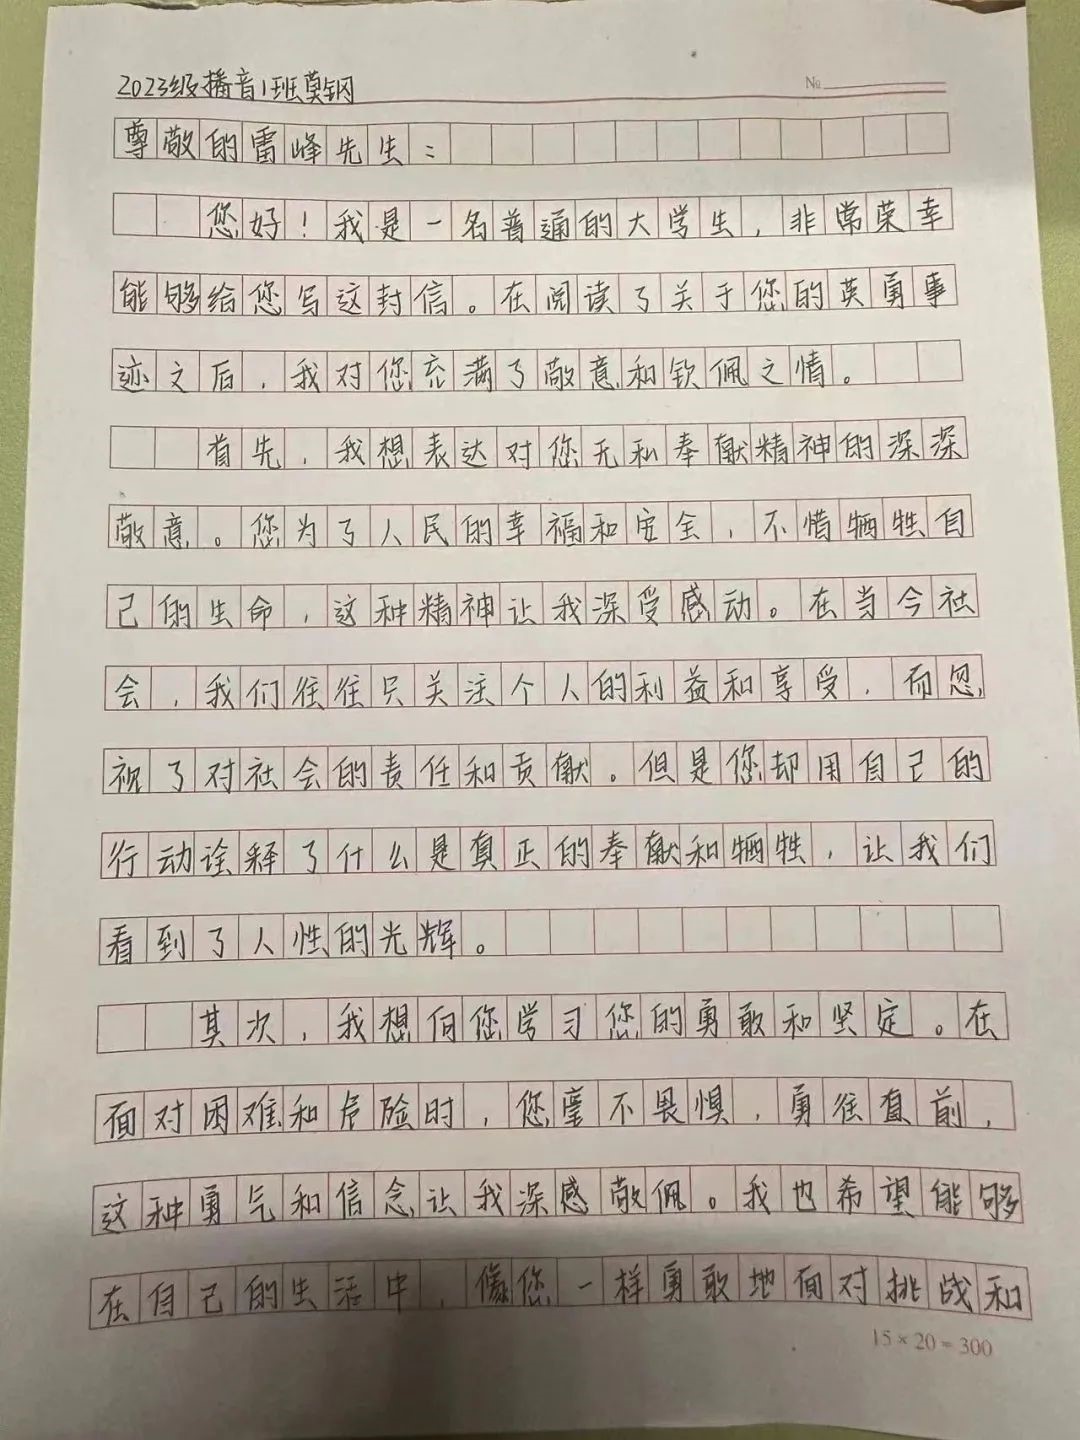 2023级播音1班莫钢
№
尊敬的雷峰先生：
您好！我是一名普通的大学生，非常荣幸
能够给您写这封信。在阅读了关于您的英勇事
迹之后，我对您充满了敬意和钦佩之情。
首先，我想表达对您无私奉献精神的深深
敬意。您为了人民的幸福和安全，不惜牺牲自
己的生命，这种精神让我深受感动。在当今社
会，我们往往只关注个人的利益和享受，而忽
视了对社会的责任和贡献。但是您却用自己的
行动诠释了什么是真正的奉献和牺牲，让我们
看到了人性的光辉。
其次，我想向您学习您的勇敢和坚定。在
面对困难和危险时，您毫不畏惧，勇往直前，
这种勇气和信念让我深感敬佩。我也希望能够
在自己的生活中，像您一样勇敢地面对挑战和
15×20=300